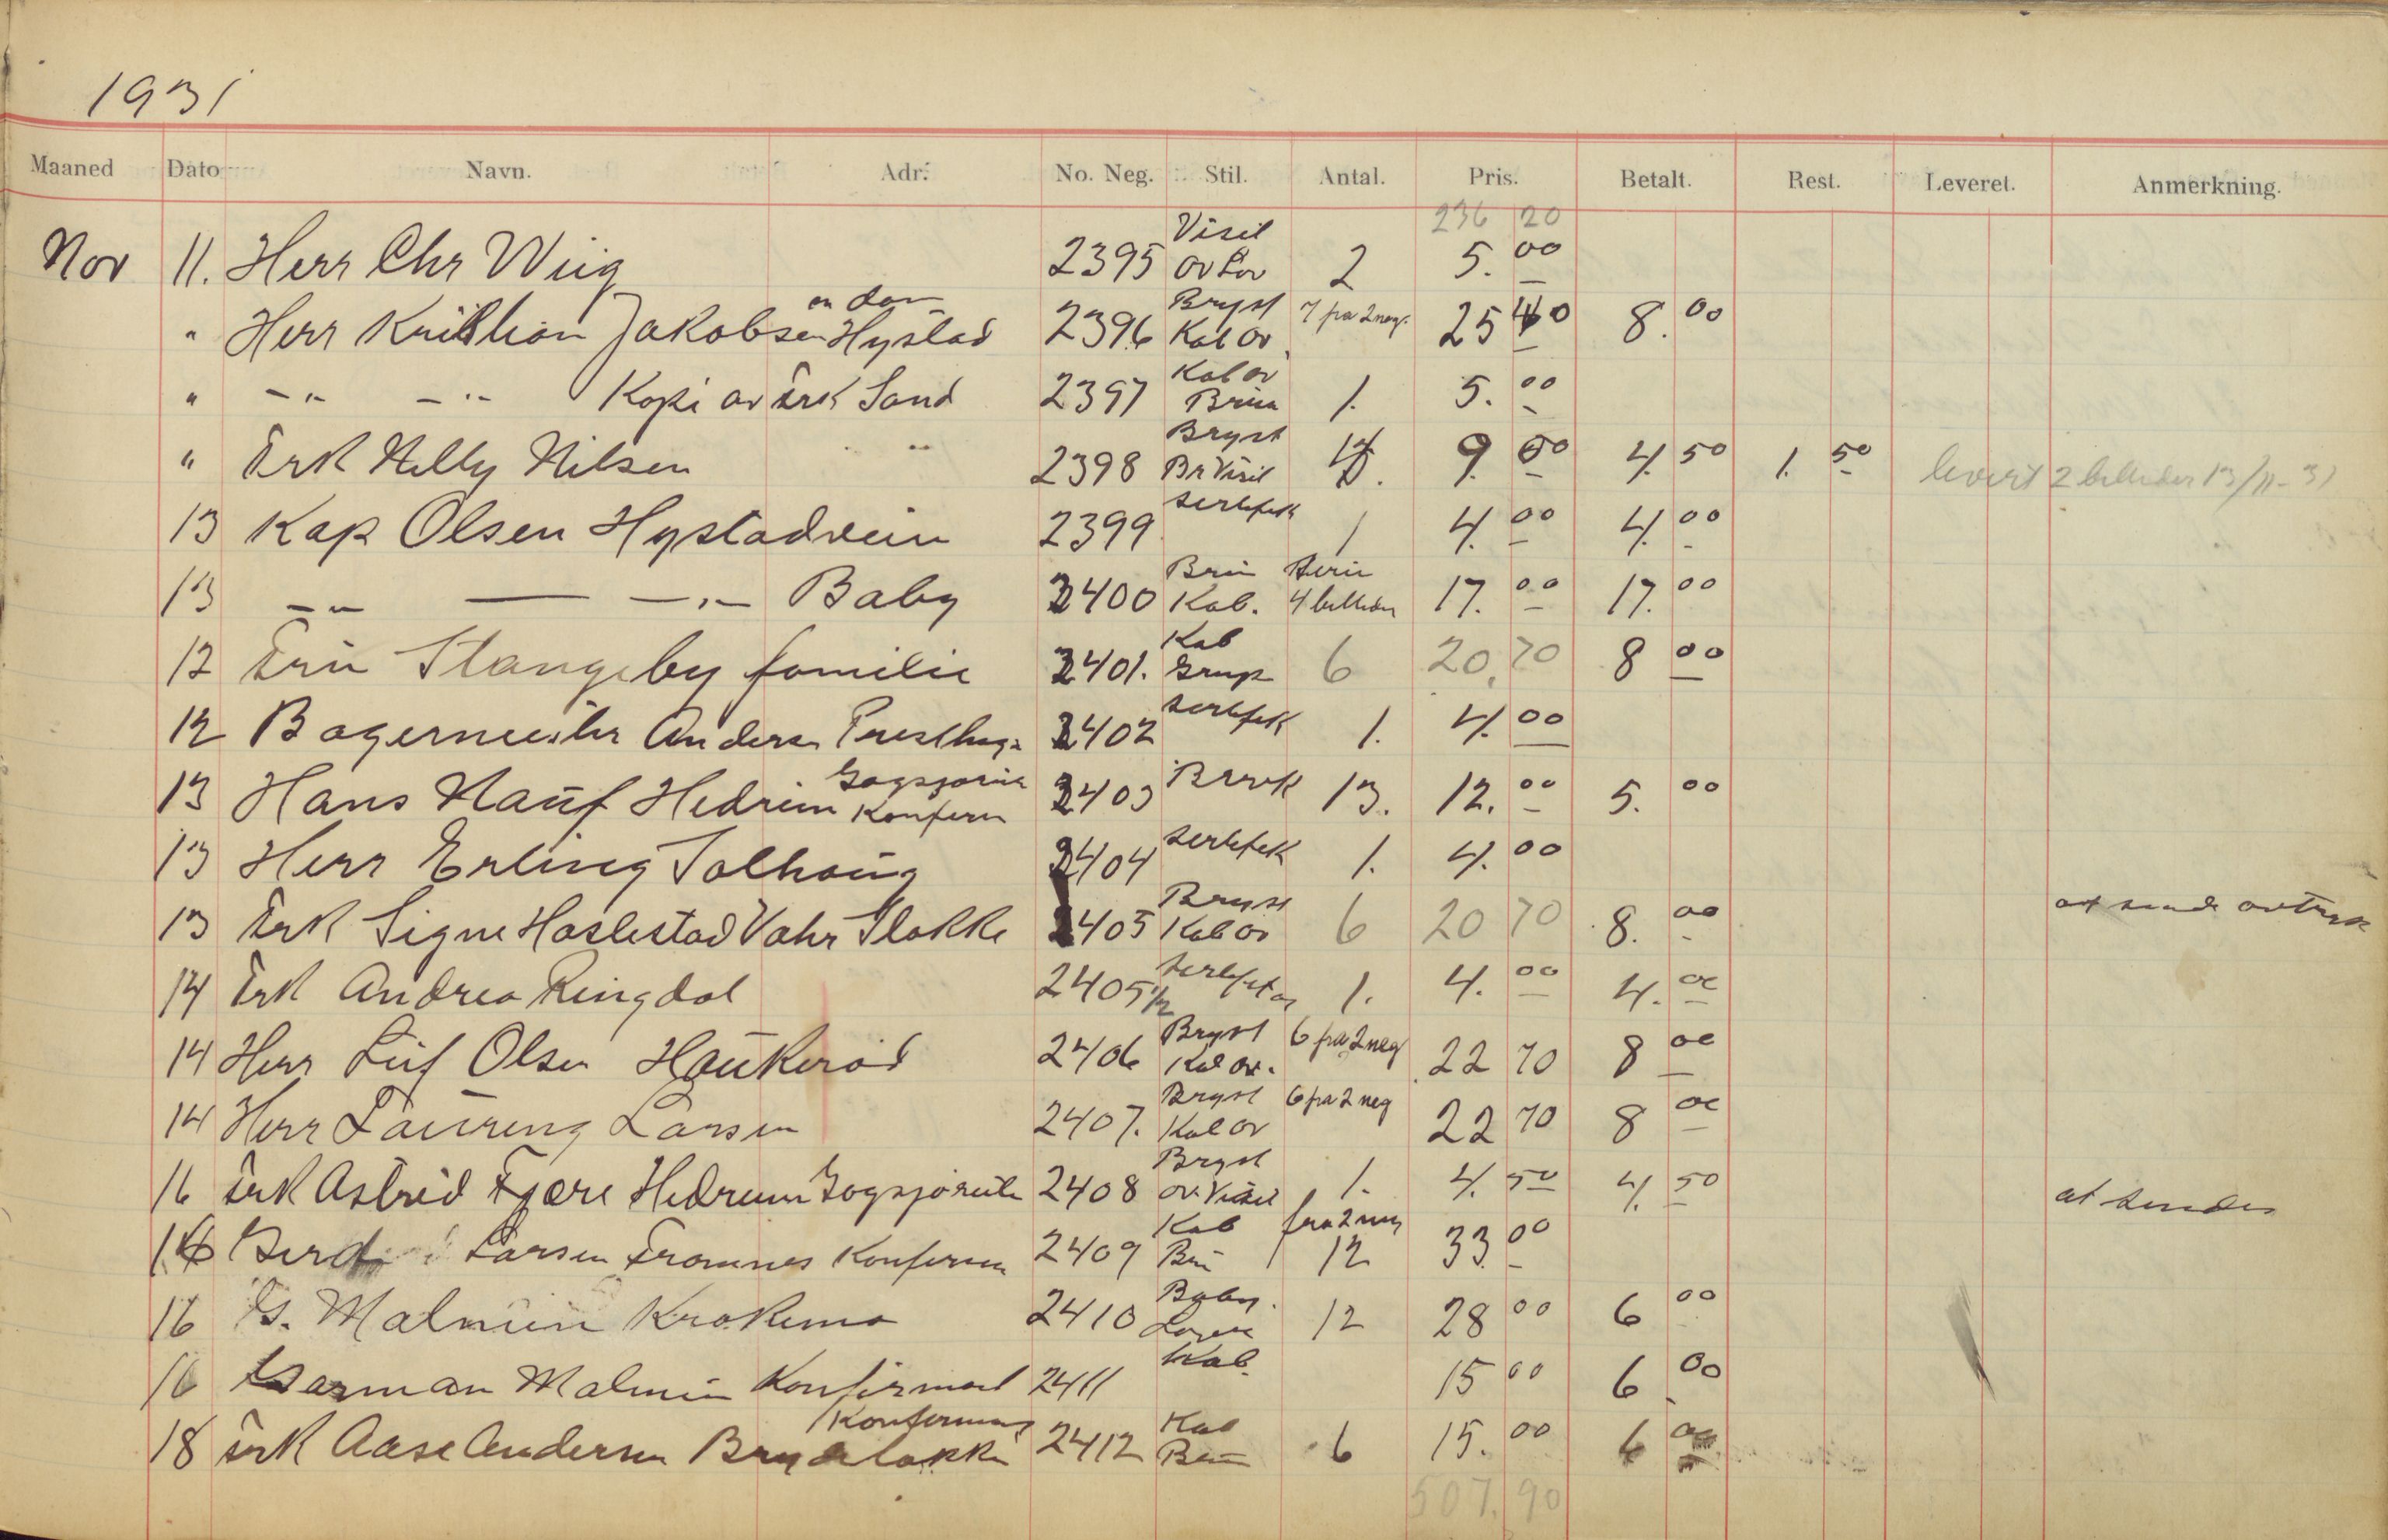 1931
Maaned Dato Navn. Adr. No. Neg. Stil. Antal. Pris. Betalt. Rest. Leveret. Anmerkning.
236 20
Nov 11. Herr Chr Wiig 2395 Visit ov Lov 2 5.00
" Herr Kristian Jakobsen Hystad 2396 Bryst Kab ov 7 fra 2 neg. 25 40 8.00
" -"- -"- Kopi av Frk Sand 2397 Kab ov Brun 1. 5.00
" Frk Nelly Nilsen 2398 Bryst Br Visit 9.00 4.50 1.50 levert 2 billeder 13/11-31
13 Kap Olsen Hystadvein 2399 sertefek 1 4.00 4.00
13 -"- -"- Baby 2400 Brun Kab. Serie 4 billeder 17.00 17.00
12 Fru Stangeby familie 2401. Kab Grup 6 20,70 8 00
12 Bagermeister Andersen Presthaga 2402 sertefek 1. 4.00
13 Hans Nauf Hedrum Gogsjorid Konferm 2403 Brevk 13. 12.00 5.00
13 Herr Erling Solhaug 2404 sertefek 1. 4.00
13 Frk Signe Haslestad Vahr Slokke 2405 Bryst Kab ov 6 20 70 8.00 at sende avtryk
14 Frk Andrea Ringdal 2405 1/2 1. 4.00 4.00
14 Herr Leif Olsen Haukerød 2406 Bryst Kab ov. 6 fra 2 neg 22 70 8 00
14 Herr Laurens Larsen 2407. Bryst Kab ov 6 fra 2 neg 22 70 8 00
16 Frk Astrid Fjære Hedrum 2408 Bryst ov. Visit 1. 4.50 4.50 at sendes
16 Gerd Larsen Framnes Konferm 2409 Kab Bru fra 2 neg 12 33.00
16 G. Malmin Krokemo 2410 Baby. 12 28 00 6 00
16 Garman Malmin Konfirmat 2411 Kab. 15 00 6.00
18 Frk Aase Andersen Konfermas 2412 Kab Bru 6 15.00 6 00
507.90